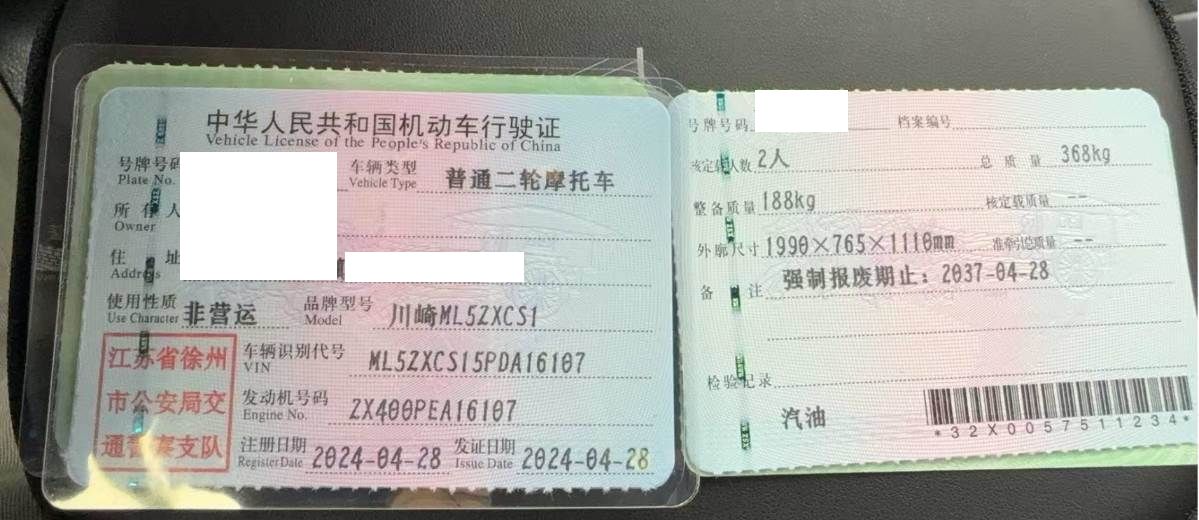 中华人民共和国机动车行驶证
Vehicle License of the People's Republic of China
号牌号码
Plate No.
车辆类型 普通二轮摩托车
Vehicle Type
所有人
Owner
住 址
Address
使用性质 非营运
Use Character
品牌型号 川崎ML5ZXCS1
Model
江苏省徐州
市公安局交
通警察支队
车辆识别代号 ML5ZXCS15PDA16107
VIN
发动机号码 ZX400PEA16107
Engine No.
注册日期 2024-04-28
Register Date
发证日期 2024-04-28
Issue Date
号牌号码
档案编号
核定载人数 2人
总质量 368kg
整备质量 188kg
核定载质量 --
外廓尺寸 1990×765×1110mm
准牵引总质量 --
备 注 强制报废期止：2037-04-28
检验记录
汽油
*32X0057511234*